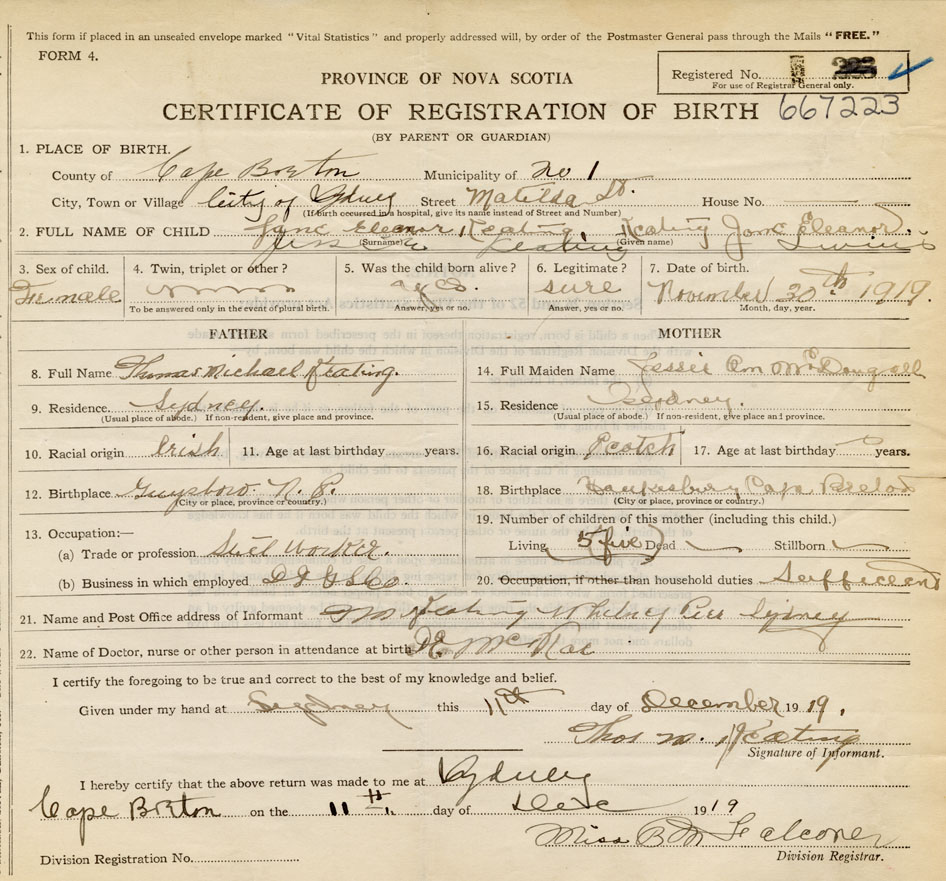 This form if placed in an unsealed envelope marked "Vital Statistics" and properly addressed will, by order of the Postmaster General pass through the Mails "FREE."
FORM 4.
Registered No.
For use of Registrar General only.
PROVINCE OF NOVA SCOTIA
CERTIFICATE OF REGISTRATION OF BIRTH 667223
(BY PARENT OR GUARDIAN)
1. PLACE OF BIRTH.
County of Cape Breton Municipality of No 1
City, Town or Village City of Sydney Street Matilda St. House No.
(If birth occurred in a hospital, give its name instead of Street and Number)
2. FULL NAME OF CHILD Jane Eleanor Keating, Keating Jane Eleanor
(Surname) Keating (Given name)
3. Sex of child. 4. Twin, triplet or other? 5. Was the child born alive? 6. Legitimate? 7. Date of birth.
Female yes. sure November 30th 1919.
To be answered only in the event of plural birth. Answer, yes or no. Answer, yes or no. Month, day, year.
FATHER MOTHER
8. Full Name Thomas Michael Keating. 14. Full Maiden Name Jessie Ann McDougall
9. Residence. Sydney. 15. Residence Sydney.
(Usual place of abode.) If non-resident, give place and province. (Usual place of abode.) If non-resident, give place and province.
10. Racial origin Irish 11. Age at last birthday years. 16. Racial origin Scotch 17. Age at last birthday years.
12. Birthplace Guysboro N.S. 18. Birthplace Hawkesbury Cape Breton
(City or place, province or country.) (City or place, province or country.)
13. Occupation:— 19. Number of children of this mother (including this child.)
(a) Trade or profession Steel Worker. Living 5 (five) Dead Stillborn
(b) Business in which employed D I & S Co. 20. Occupation, if other than household duties Sufficient
21. Name and Post Office address of Informant Keating Whitney Pier Sydney
22. Name of Doctor, nurse or other person in attendance at birth McRae
I certify the foregoing to be true and correct to the best of my knowledge and belief.
Given under my hand at Sydney this 11th day of December 1919.
Thos M. Keating
Signature of Informant.
I hereby certify that the above return was made to me at Sydney
Cape Breton on the 11th day of Dec 1919
Miss B M Falconer
Division Registration No. Division Registrar.